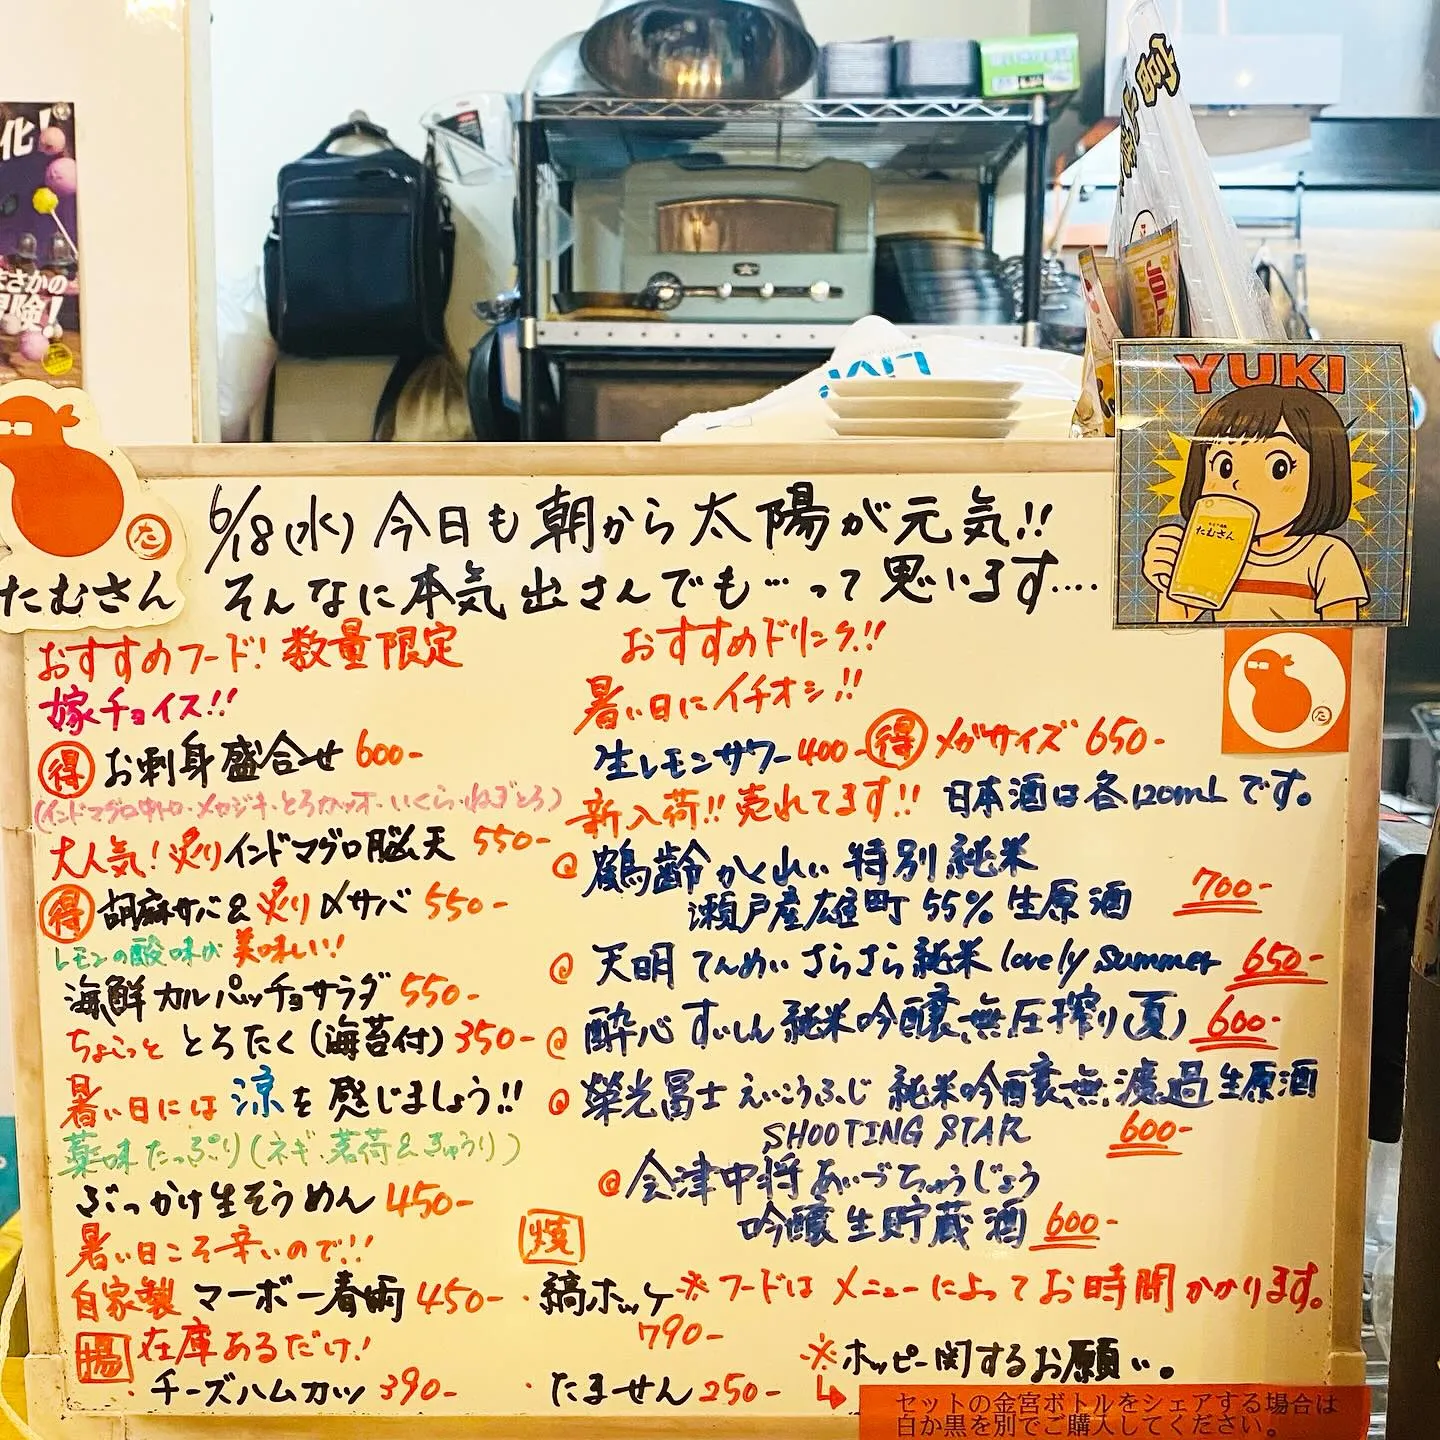 化!
まさかの
冒険!
LIVE
YUKI
たむさん
た
たむさん
6/18(水)今日も朝から太陽が元気!!
そんなに本気出さんでも…って思います....
おすすめフード!数量限定
嫁チョイス!!
得 お刺身盛合せ 600-
(インドマグロ中トロ・メカジキ・とろカツオ・いくら・ねぎとろ)
大人気!炙りインドマグロ脳天 550-
得 胡麻サバ&炙り〆サバ 550-
レモンの酸味が美味しい!
海鮮カルパッチョサラダ 550-
ちょこっと とろたく(海苔付) 350-
暑い日には涼を感じましょう!!
薬味たっぷり(ネギ、茗荷&きゅうり)
ぶっかけ生そうめん 450-
暑い日こそ辛いので!!
自家製 マーボー春雨 450-
揚 在庫あるだけ!
・チーズハムカツ 390-
焼
・縞ホッケ
790-
・たません 250-
おすすめドリンク!!
暑い日にイチオシ!!
生レモンサワー 400- 得 メガサイズ 650-
新入荷!!売れてます!! 日本酒は各120mLです。
@ 鶴齢 かくれい 特別純米
瀬戸産雄町55% 生原酒 700-
@ 天明 てんめい さらさら純米 lovely summer 650-
@ 酔心 すいしん 純米吟醸無圧搾り(夏) 600-
@ 榮光冨士 えいこうふじ 純米吟醸無濾過生原酒
SHOOTING STAR 600-
@ 会津中将 あいづちゅうじょう
吟醸生貯蔵酒 600-
※フードはメニューによってお時間かかります。
※ホッピー関するお願い。
セットの金宮ボトルをシェアする場合は
白か黒を別でご購入してください。
た